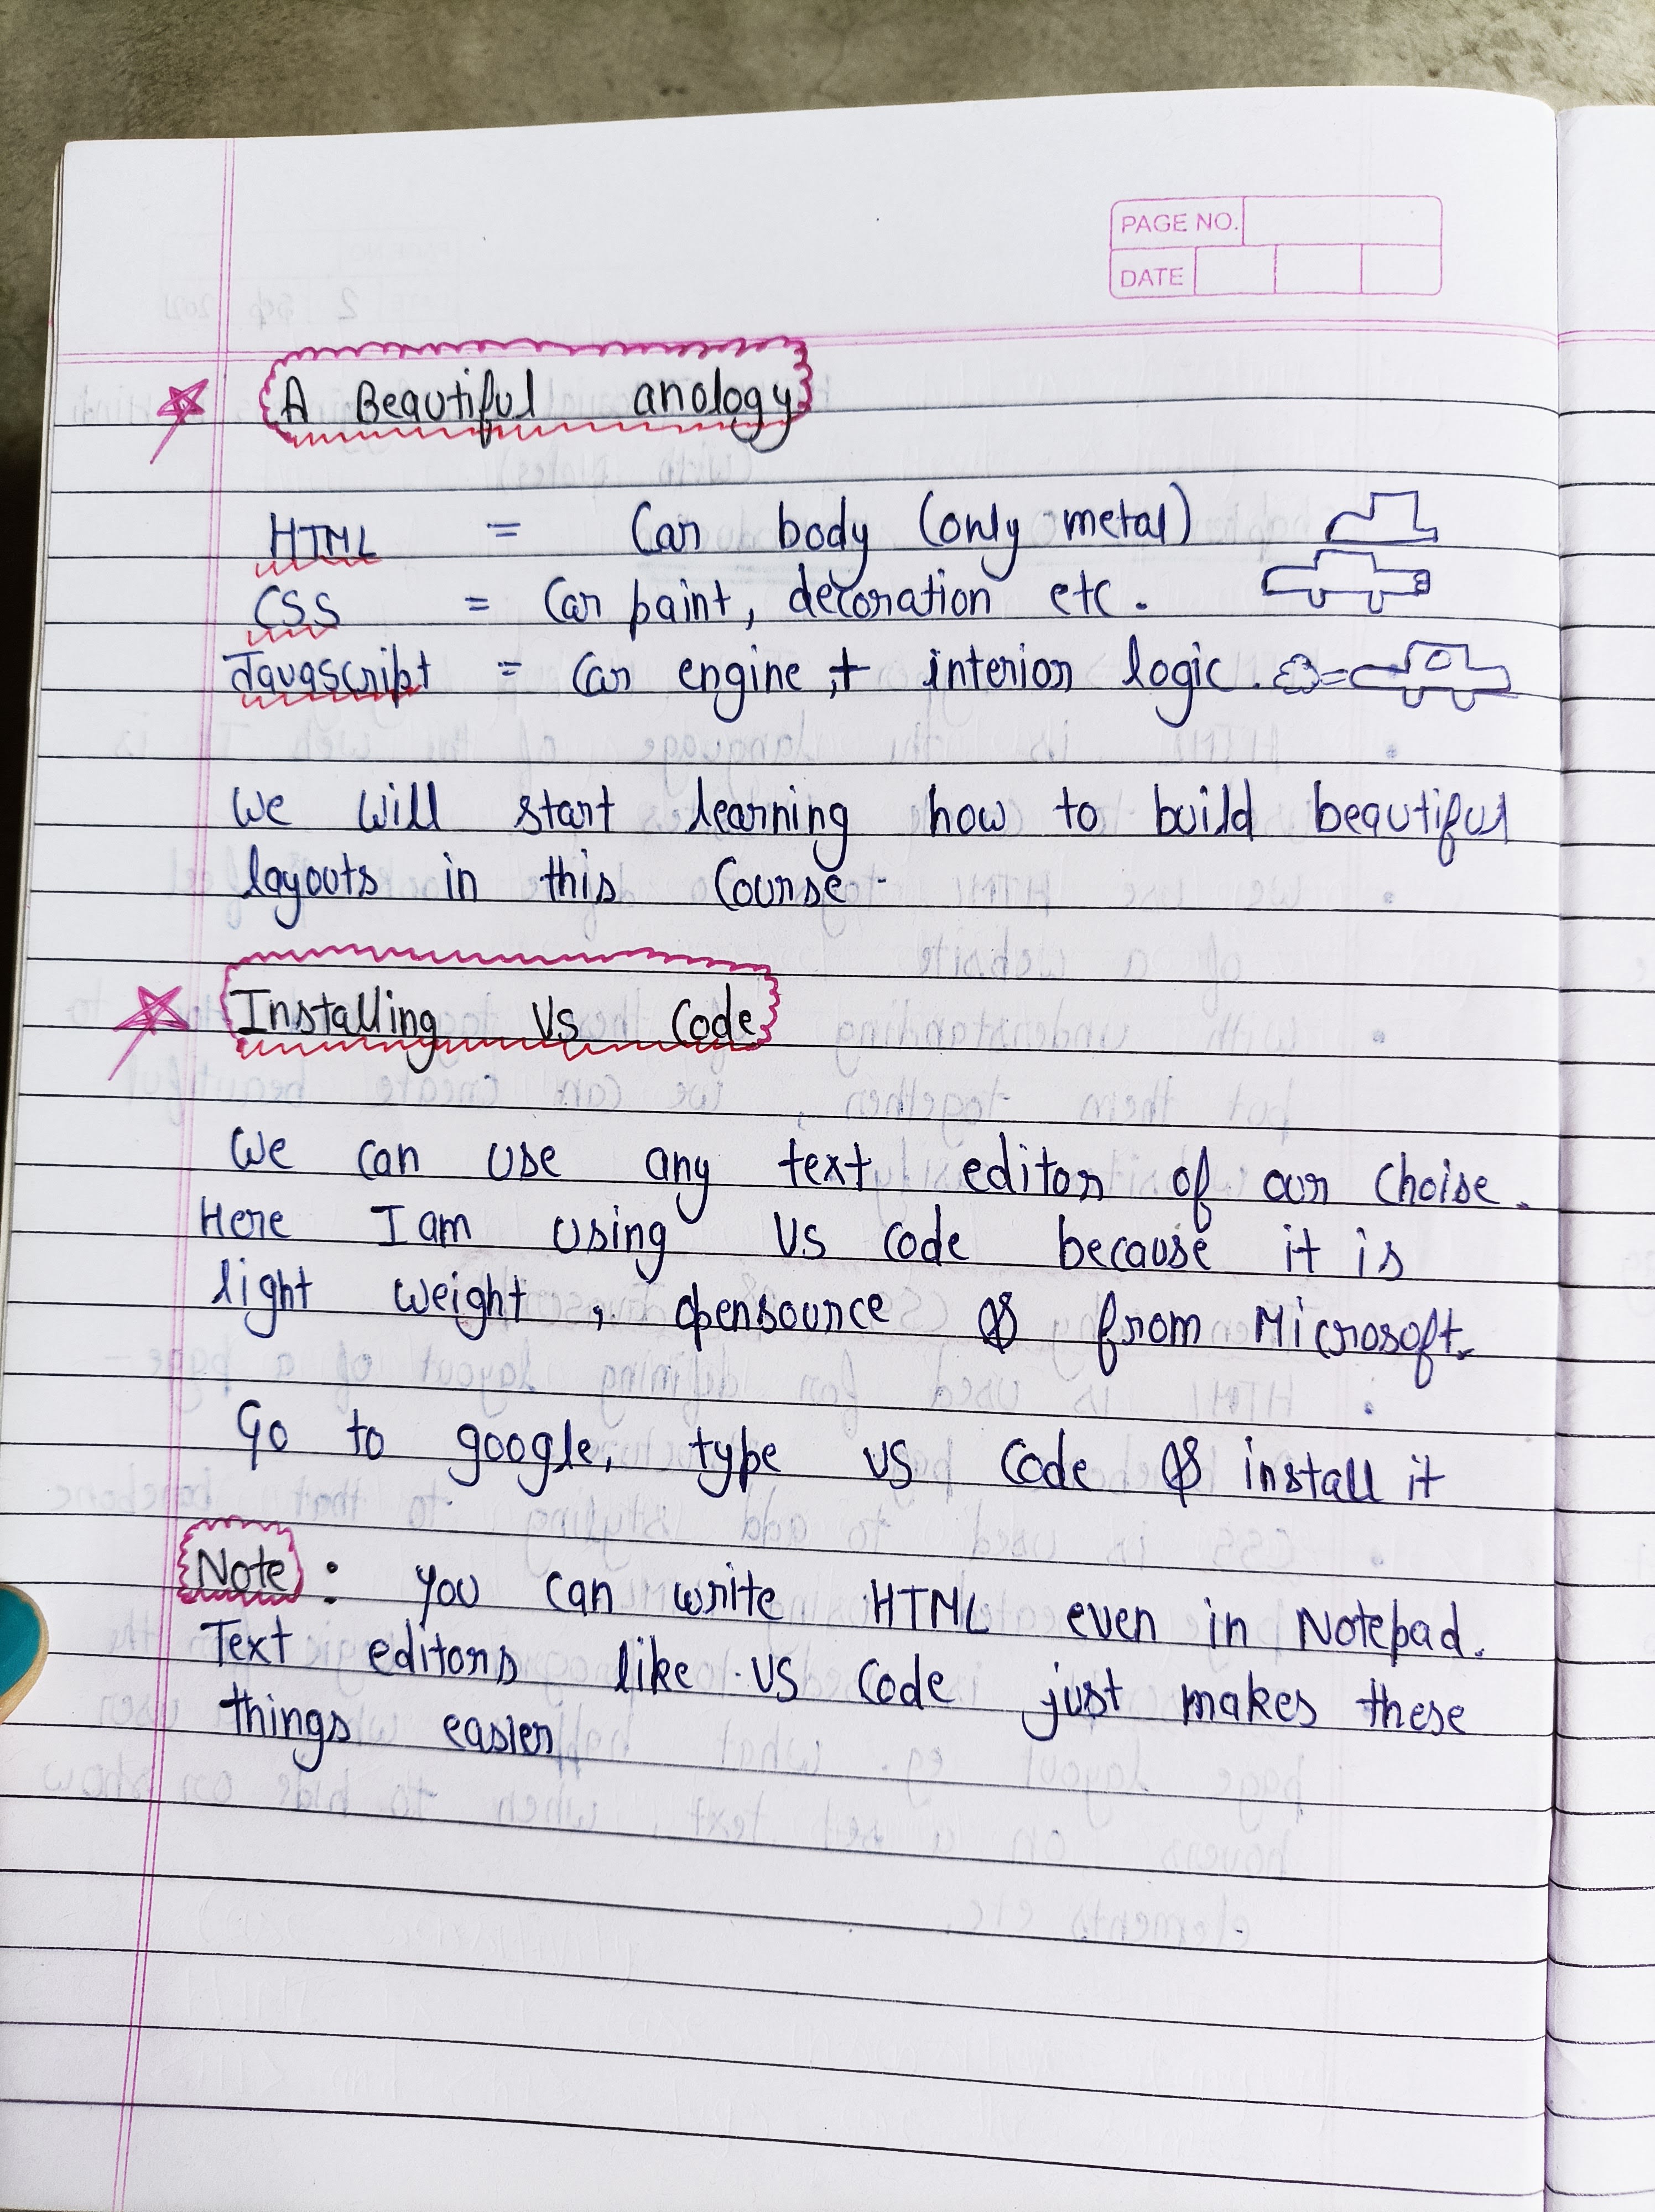 PAGE NO.
DATE
A Beautiful anology
HTML = Car body (only metal)
CSS = Car paint, decoration etc.
Javascript = Car engine, + interior logic.
We will start learning how to build beautiful
layouts in this Course-
Installing VS Code
We can use any text editor of our Choise.
Here I am using VS Code because it is
light weight, opensource & from Microsoft.
Go to google, type VS Code & install it
Note: You can write HTML even in Notepad.
Text editors like VS Code just makes these
things easier